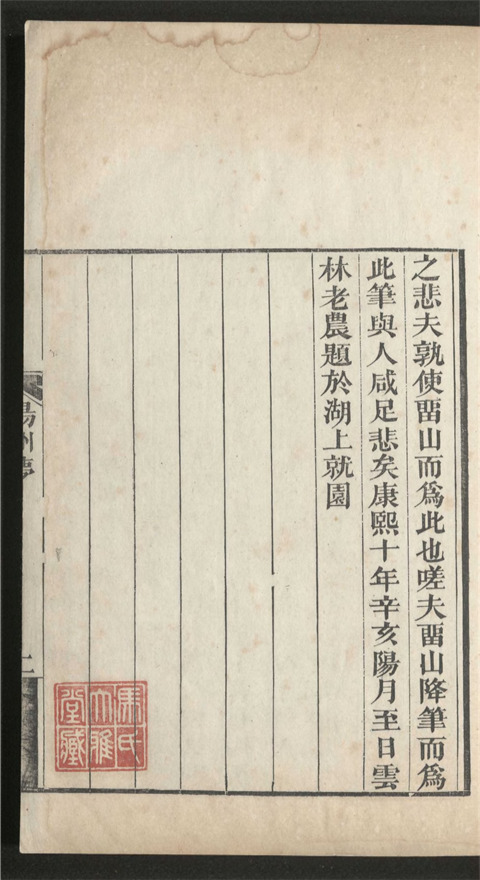 之悲夫孰使畱山而爲此也嗟夫畱山降筆而爲
此筆與人咸足悲矣康熙十年辛亥陽月至日雲
林老農題於湖上就園
揚州夢
二
馬氏
大雅
堂藏